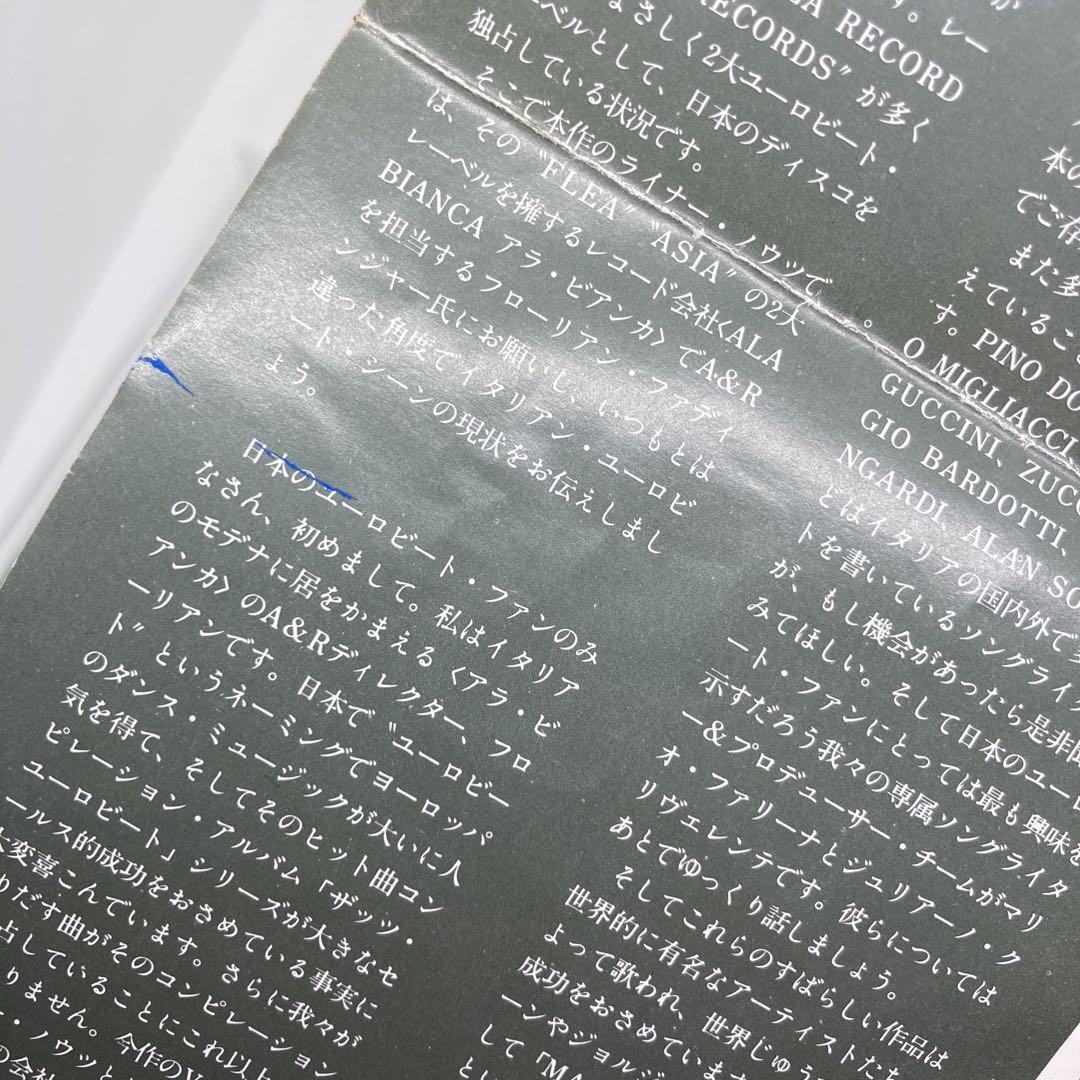 す。レー
A RECORD
RECORDS〞が多く
なさしく2大ユーロビート・
ベルとして、日本のディスコを
独占している状況です。
そこで本作のライナー・ノウツで
は、その〝FLEA〞〝ASIA〞の2大
レーベルを擁するレコード会社〈ALA
BIANCA アラ・ビアンカ〉でA&R
を担当するフローリアン・ファディ
ンジャー氏にお願いし、いつもとは
違った角度でイタリアン・ユーロビ
ート・シーンの現状をお伝えしまし
ょう。
日本のユーロビート・ファンのみ
なさん、初めまして。私はイタリア
のモデナに居をかまえる〈アラ・ビ
アンカ〉のA&Rディレクター、フロ
ーリアンです。日本で〝ユーロビー
ト〞というネーミングでヨーロッパ
のダンス・ミュージックが大いに人
気を得て、そしてそのヒット曲コン
ピレーション・アルバム「ザッツ・
ユーロビート」シリーズが大きなセ
ールス的成功をおさめている事実に
変喜こんでいます。さらに我々が
りだす曲がそのコンピレーション
占していることにこれ以上
りません。今作のV
・ノウツと
の会社
本の
でご存
また多
えていること
す。PINO DO
O MIGLIACCI、
GUCCINI、ZUCC
GIO BARDOTTI、
NGARDI、ALAN SO
どはイタリアの国内外で多
トを書いているソングライタ
が、もし機会があったら是非聞
みてほしい。そして日本のユーロ
ート・ファンにとっては最も興味を
示すだろう我々の専属ソングライタ
ー&プロデューサー・チームがマリ
オ・ファリーナとジュリアーノ・ク
リヴェレンテです。彼らについては
あとでゆっくり話しましょう。
そしてこれらのすばらしい作品は
世界的に有名なアーティストたち
よって歌われ、世界じゅう
成功をおさめています
ーンやジョルジ
して「MA
とい